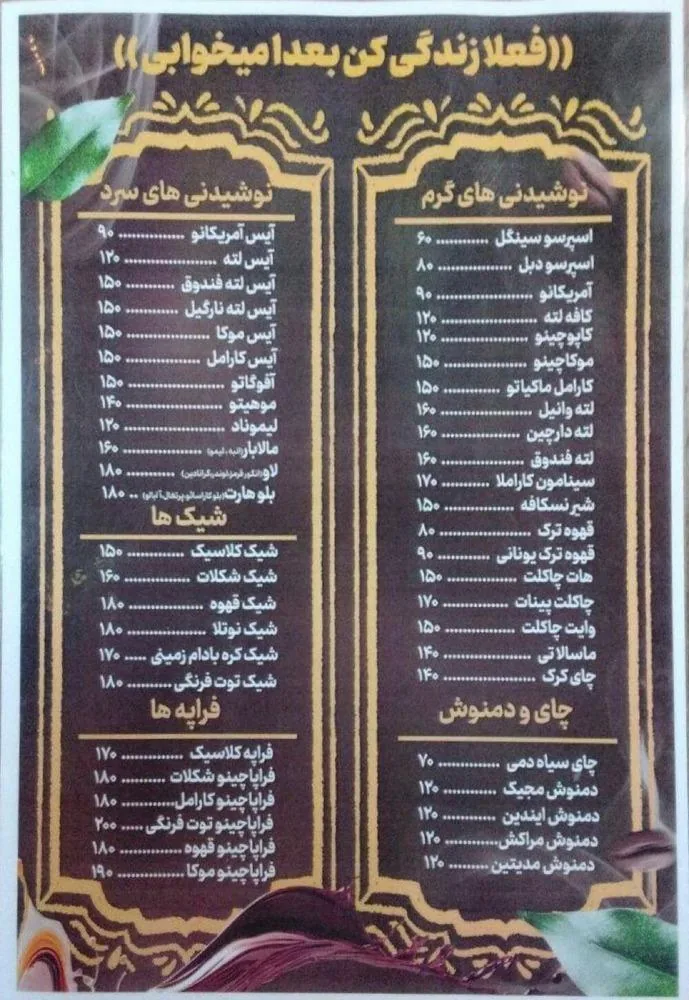 ((فعلا زندگی کن بعدا میخوابی))
نوشیدنی های گرم
اسپرسو سینگل ............ ۶۰
اسپرسو دبل ................. ۸۰
آمریکانو ...................... ۹۰
کافه لته ...................... ۱۲۰
کاپوچینو ..................... ۱۲۰
موکاچینو ..................... ۱۵۰
کارامل ماکیاتو .............. ۱۵۰
لته وانیل ..................... ۱۶۰
لته دارچین .................. ۱۶۰
لته فندوق ................... ۱۶۰
سینامون کاراملا ............ ۱۷۰
شیر نسکافه ................. ۱۵۰
قهوه ترک ..................... ۸۰
قهوه ترک یونانی ............ ۹۰
هات چاکلت ................. ۱۵۰
چاکلت پینات ................ ۱۷۰
وایت چاکلت ................. ۱۵۰
ماسالا تی .................... ۱۴۰
چای کرک ..................... ۱۴۰
چای و دمنوش
چای سیاه دمی .............. ۷۰
دمنوش مجیک .............. ۱۲۰
دمنوش ایندین .............. ۱۲۰
دمنوش مراکش.............. ۱۲۰
دمنوش مدیتین .......... ۱۲۰
نوشیدنی های سرد
آیس آمریکانو ............... ۹۰
آیس لته ..................... ۱۲۰
آیس لته فندوق ........... ۱۵۰
آیس لته نارگیل ........... ۱۵۰
آیس موکا ................... ۱۵۰
آیس کارامل ................ ۱۵۰
آفوگاتو ...................... ۱۵۰
موهیتو ...................... ۱۴۰
لیموناد ...................... ۱۲۰
مالابار(انبه ، لیمو) .................. ۱۶۰
لاو(انگور قرمز،لوندر،گرانادین) ............ ۱۸۰
بلو هارت(بلو کاراسائو،پرتقال،آنانو) .. ۱۸۰
شیک ها
شیک کلاسیک .............. ۱۵۰
شیک شکلات ............... ۱۶۰
شیک قهوه .................. ۱۸۰
شیک نوتلا ................... ۱۸۰
شیک کره بادام زمینی ..... ۱۷۰
شیک توت فرنگی ........... ۱۸۰
فراپه ها
فراپه کلاسیک .............. ۱۷۰
فراپاچینو شکلات .......... ۱۸۰
فراپاچینو کارامل............ ۱۸۰
فراپاچینو توت فرنگی ..... ۲۰۰
فراپاچینو قهوه ............. ۱۸۰
فراپاچینو موکا .............. ۱۹۰